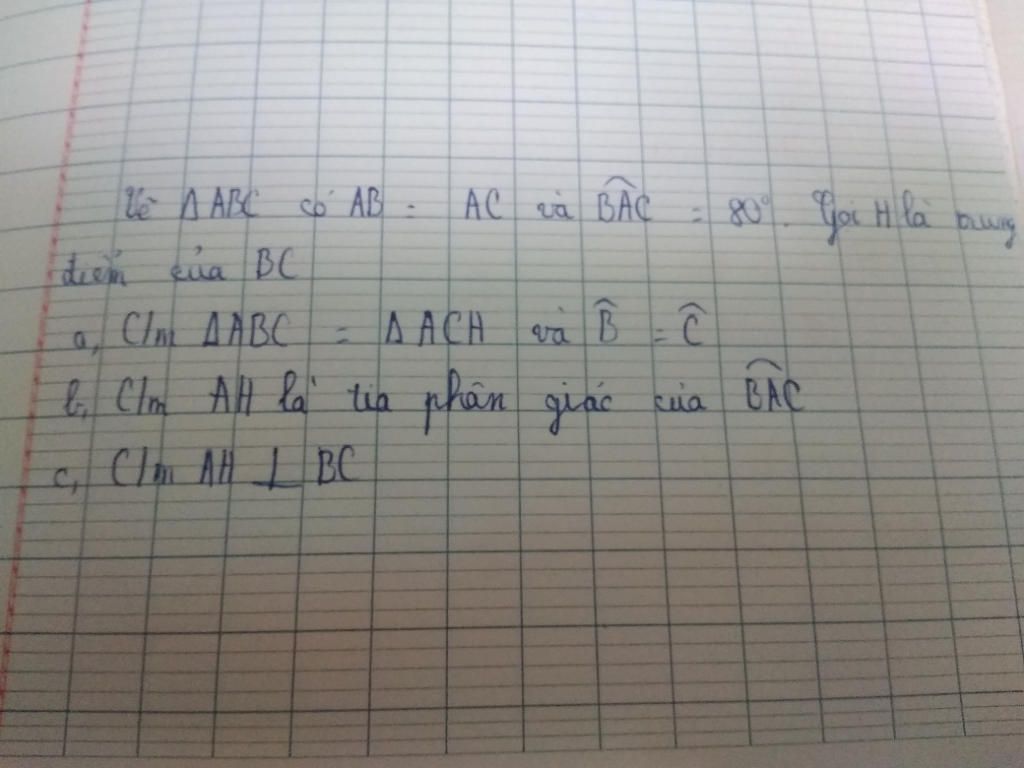 Vẽ ΔABC có AB = AC và BAC = 80°. Gọi H là trung
điểm của BC
a, C/m ΔABC = ΔACH và B = C
b, C/m AH là tia phân giác của BAC
c, C/m AH ⊥ BC